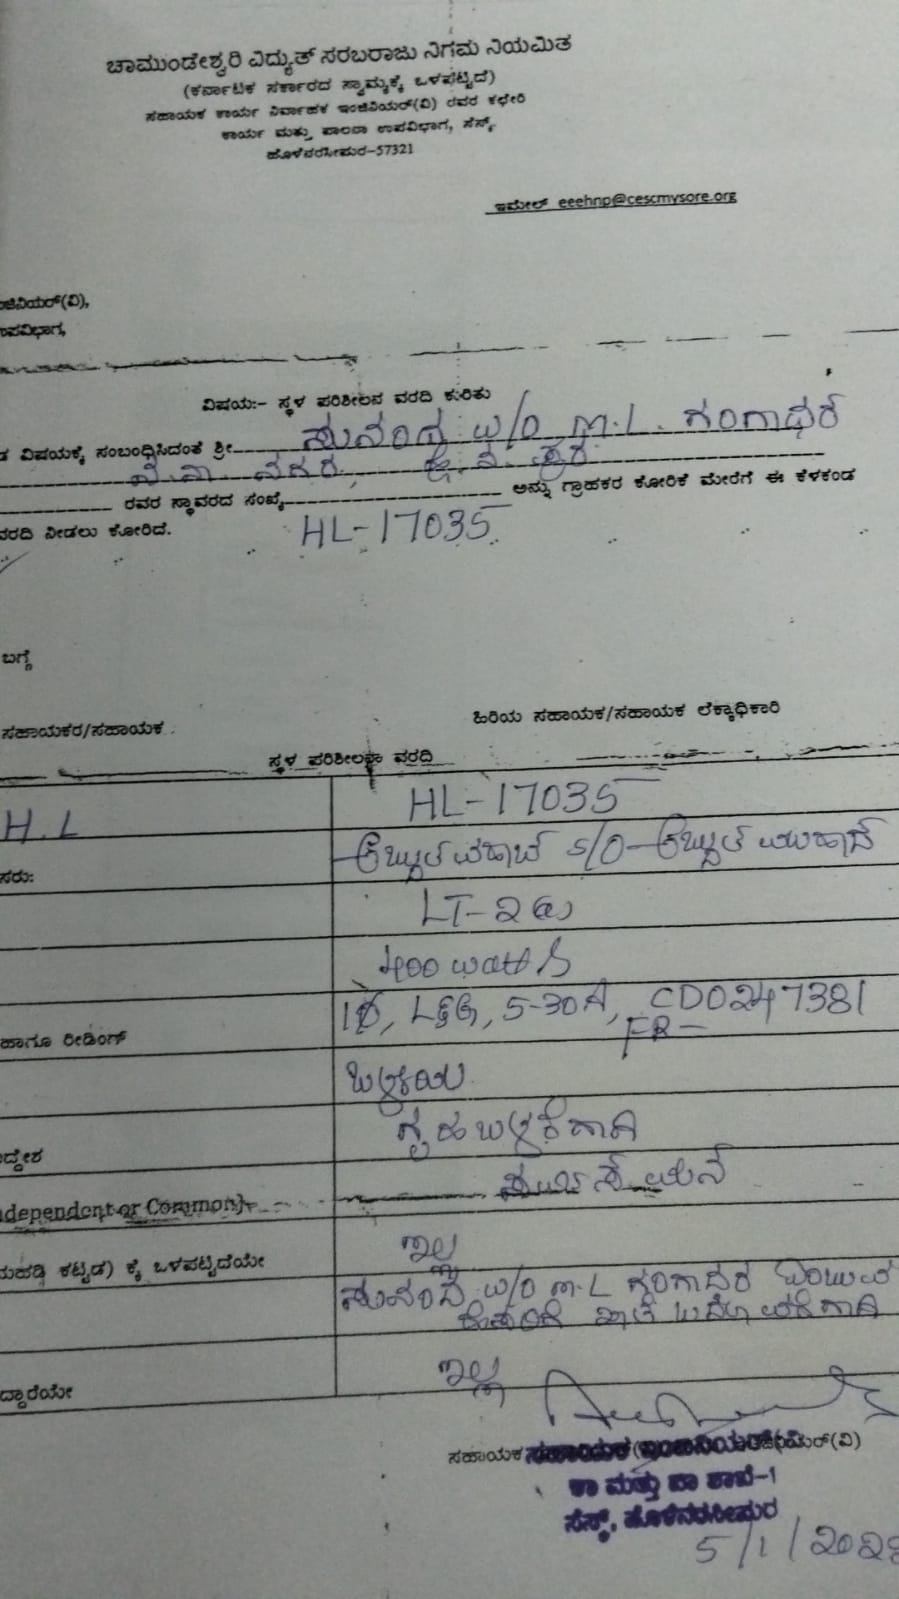 ಚಾಮುಂಡೇಶ್ವರಿ ವಿದ್ಯುತ್ ಸರಬರಾಜು ನಿಗಮ ನಿಯಮಿತ
(ಕರ್ನಾಟಕ ಸರ್ಕಾರದ ಸ್ವಾಮ್ಯಕ್ಕೆ ಒಳಪಟ್ಟಿದೆ)
ಸಹಾಯಕ ಕಾರ್ಯ ನಿರ್ವಾಹಕ ಇಂಜಿನಿಯರ್(ವಿ) ರವರ ಕಛೇರಿ
ಕಾರ್ಯ ಮತ್ತು ಪಾಲನಾ ಉಪವಿಭಾಗ, ಸೆಸ್ಕ್
ಹೊಳೆನರಸೀಪುರ-57321
ಇಮೇಲ್ eeehnp@cescmysore.org
ಂಜಿನಿಯರ್(ವಿ),
ಉಪವಿಭಾಗ,
ವಿಷಯ:- ಸ್ಥಳ ಪರಿಶೀಲನ ವರದಿ ಕುರಿತು
ಡ ವಿಷಯಕ್ಕೆ ಸಂಬಂಧಿಸಿದಂತೆ ಶ್ರೀ ಸುನಂದ w/o M.L. ಗಂಗಾಧರ
ರವರ ಸ್ಥಾವರದ ಸಂಖ್ಯೆ ಅನ್ನು ಗ್ರಾಹಕರ ಕೋರಿಕೆ ಮೇರೆಗೆ ಈ ಕೆಳಕಂಡ
ವರದಿ ನೀಡಲು ಕೋರಿದೆ. HL-17035
ಬಗ್ಗೆ
ಸಹಾಯಕರ/ಸಹಾಯಕ ಹಿರಿಯ ಸಹಾಯಕ/ಸಹಾಯಕ ಲೆಕ್ಕಾಧಿಕಾರಿ
ಸ್ಥಳ ಪರಿಶೀಲನಾ ವರದಿ
H.L HL-17035
ಸರು: S/O
LT-2(a)
400 ವಾಟ್ಸ್
ಹಾಗೂ ರೀಡಿಂಗ್ 1Φ, L&G, 5-30A, CD0247381
FR-
ಒಳ್ಳೆಯ
ದ್ದೇಶ ಗೃಹಬಳಕೆಗಾಗಿ
ndependent or Common)
ಮಹಡಿ ಕಟ್ಟಡ) ಕ್ಕೆ ಒಳಪಟ್ಟಿದೆಯೇ ಇಲ್ಲ
ಸುನಂದ w/o M.L ಗಂಗಾಧರ ಎಂಬುವ
ಹೆಸರಿಗೆ ಖಾತೆ ಬದಲಾವಣೆಗಾಗಿ
ದ್ದಾರೆಯೇ ಇಲ್ಲ
ಸಹಾಯಕ ಇಂಜಿನಿಯರ್(ವಿ)
ಕಾ ಮತ್ತು ಪಾ ಶಾಖೆ-1
ಸೆಸ್ಕ್, ಹೊಳೆನರಸೀಪುರ